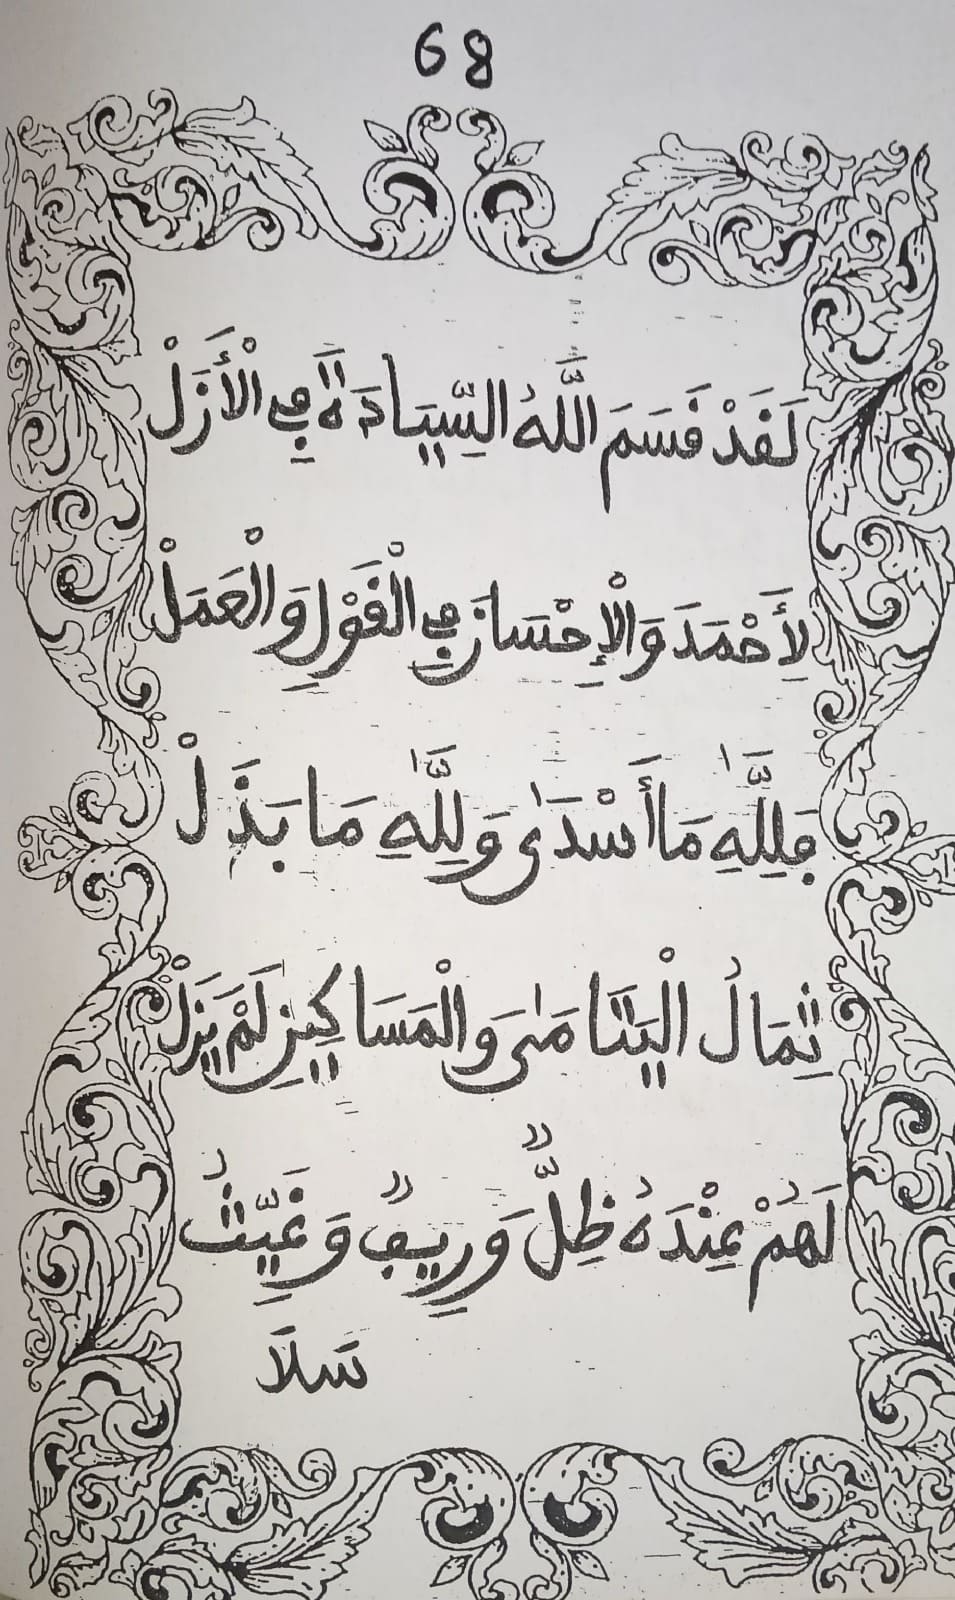 68
لَقَدْ قَسَمَ اللَّهُ السِّيَادَةَ فِي الْأَزَلْ
لِأَحْمَدَ وَالْإِحْسَانَ فِي الْقَوْلِ وَالْعَمَلْ
فَلِلَّهِ مَا أَسْدَى وَلِلَّهِ مَا بَذَلْ
ثِمَالُ الْيَتَامَى وَالْمَسَاكِينِ لَمْ يَزَلْ
لَهُمْ عِنْدَهُ ظِلٌّ وَرِيفٌ وَغَيْثُ
سَلاَ